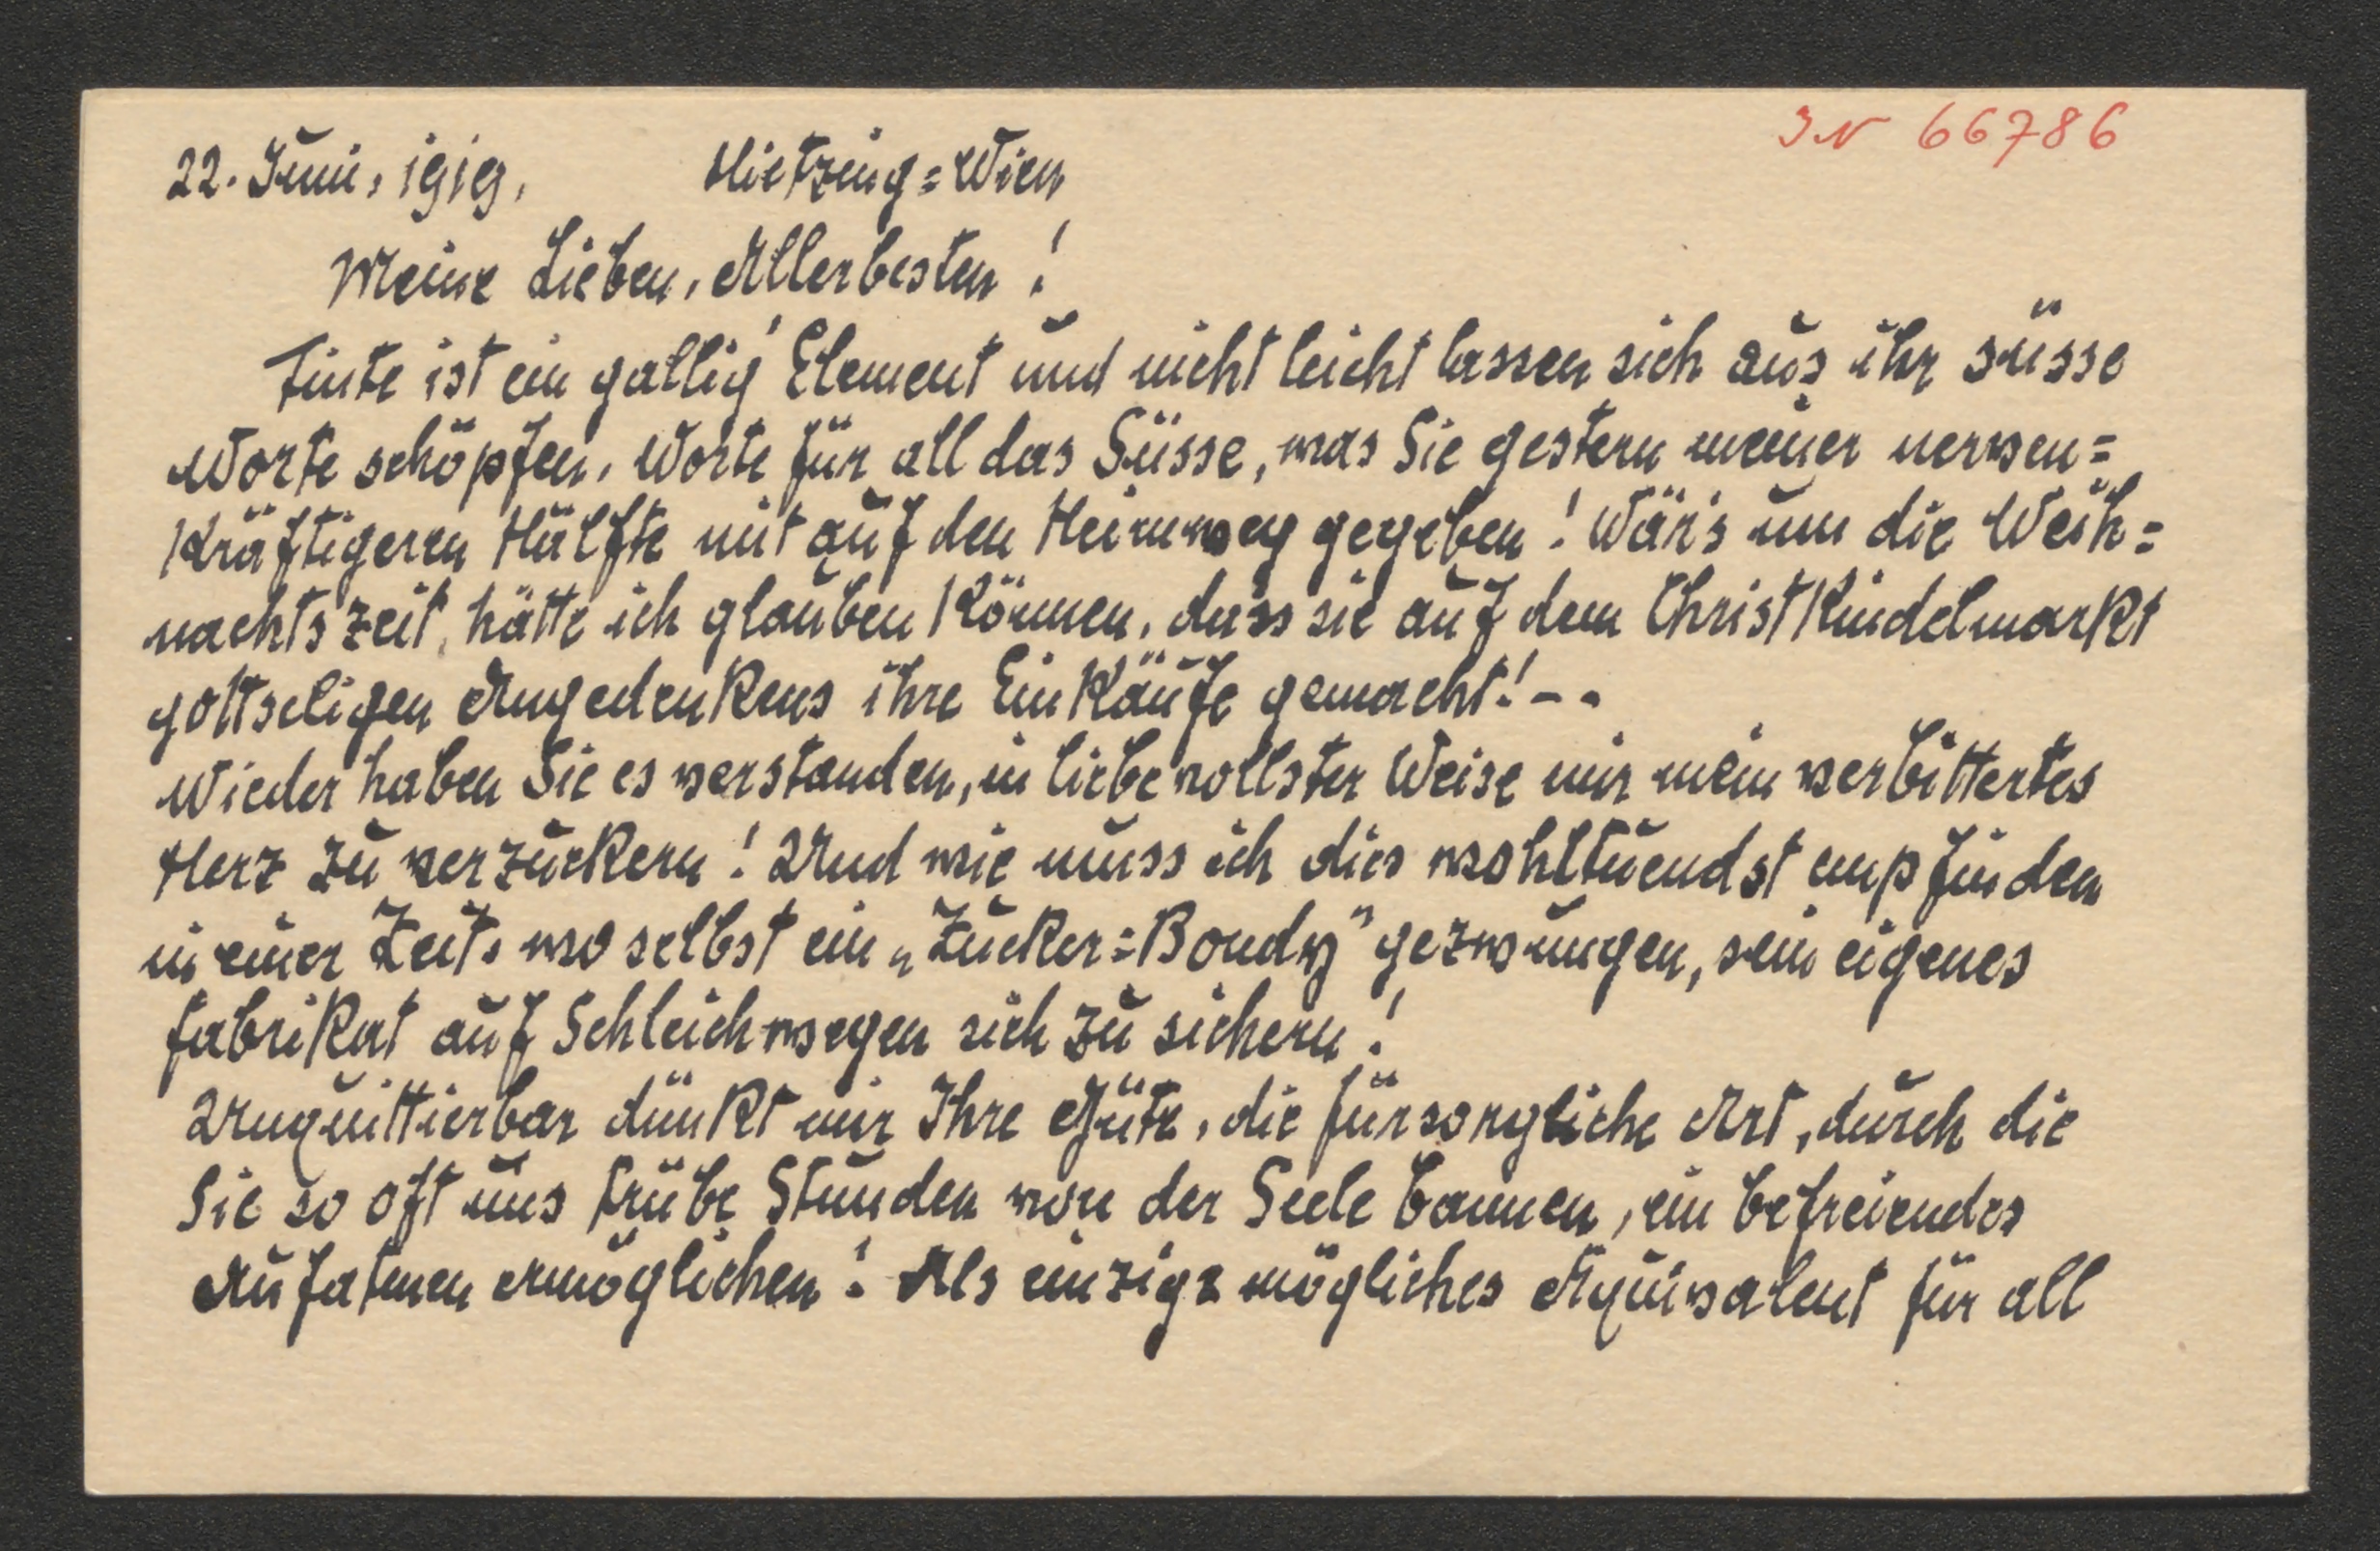 IN 66786
22. Juni, 1919, Hietzing=Wien
Meine Lieben, Allerbesten!
Tinte ist ein gallig' Element und nicht leicht lassen sich aus ihr süsse
Worte schöpfen, Worte für all das Süsse, was Sie gestern meiner nerven=
kräftigeren Hälfte mit auf den Heimweg gegeben! Wär's um die Weih=
nachtszeit, hätte ich glauben können, dass sie auf dem Christkindelmarkt
gottseligen Angedenkens ihre Einkäufe gemacht! - -
Wieder haben Sie es verstanden, in liebevollster Weise mir mein verbittertes
Herz zu verzuckern! Und wie muss ich dies wohltuendst empfinden
in einer Zeit, wo selbst ein „Zucker=Bondy" gezwungen, sein eigenes
Fabrikat auf Schleichwegen sich zu sichern!
Unquittierbar dünkt mir Ihre Güte, die fürsorgliche Art, durch die
Sie so oft uns trübe Stunden von der Seele bannen, ein befreiendes
Aufatmen ermöglichen! Als einzige mögliches Äquivalent für all